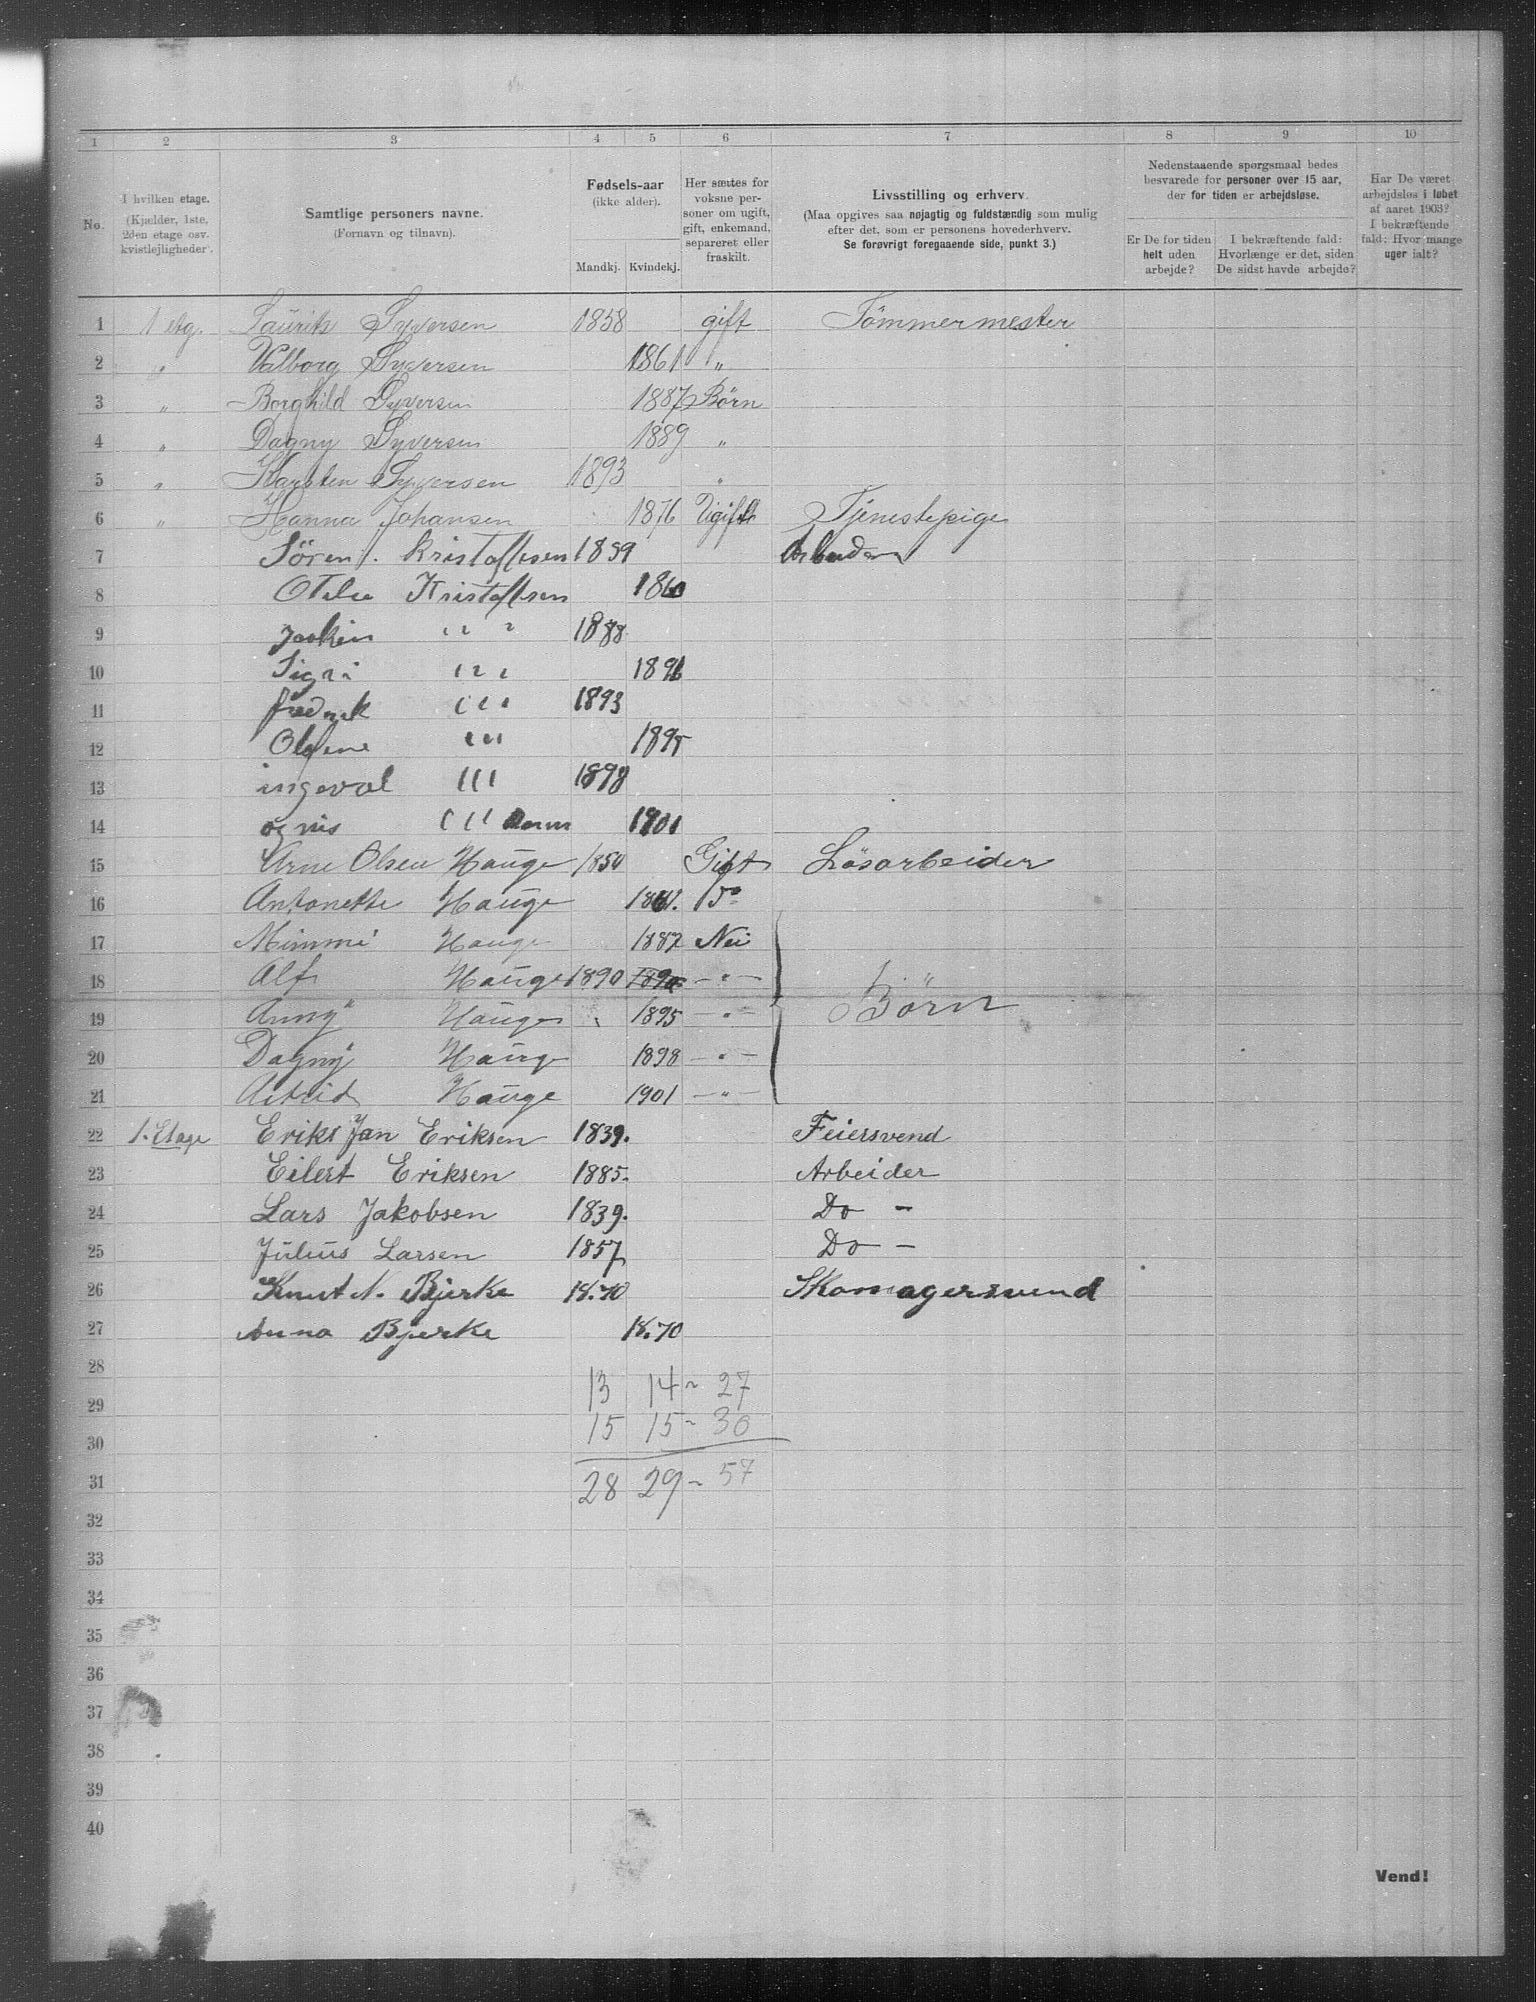 1 2 3 4 5 6 7 8 9 10
No.
I hvilken etage.
(Kjælder, 1ste,
2den etage osv.
kvistlejligheder).
Samtlige personers navne.
(Fornavn og tilnavn).
Fødsels-aar
(ikke alder).
Mandkj. Kvindekj.
Her sættes for
voksne per-
soner om ugift,
gift, enkemand,
separeret eller
fraskilt.
Livsstilling og erhverv.
(Maa opgives saa nøjagtig og fuldstændig som mulig
efter det, som er personens hovederhverv.
Se forøvrigt foregaaende side, punkt 3.)
Nedenstaaende spørgsmaal bedes
besvarede for personer over 15 aar,
der for tiden er arbejdsløse.
Er De for tiden
helt uden
arbejde?
I bekræftende fald:
Hvorlænge er det, siden
De sidst havde arbejde?
Har De været
arbejdsløs i løbet
af aaret 1903?
I bekræftende
fald: Hvor mange
uger ialt?
1 1 etg. Laurits Syversen 1858 gift Tömmermester
2 " Valborg Syversen 1861 "
3 " Borghild Syversen 1887 Börn
4 " Dagny Syversen 1889 "
5 " Karsten Syversen 1893 "
6 " Hanna Johansen 1876 Ugift Tjenestepige
7 Sören Kristoffesen 1859 Arbeider
8 Otelie Kristoffsen 1860
9 Joakim " " " 1888
10 Sigri " " " 1891
11 fredrek " " " 1893
12 Olefine " " " 1895
13 ingeval " " " 1898
14 " " " 1901
15 Arne Olsen Hauge 1850 Gift Lösarbeider
16 Antonette Hauge Do
17 Mimmi Hauge 1887 Nei
18 Alf Hauge 1890 1890 - " -
19 Anny Hauge 1895 - " - Börn
20 Dagny Hauge 1898 - " -
21 Astrid Hauge 1901 - " -
22 1. Etage Eriks Jan Eriksen 1839. Feiersvend
23 Eilert Eriksen 1885. Arbeider
24 Lars Jakobsen 1839. Do -
25 Julius Larsen 1857 Do -
26 Knut N. Bjerke 18.70 Skomagersvend
27 Anna Bjerke 18.70
28
13 14 - 27
29
15 15 - 30
30
31
28 29 - 57
32
33
34
35
36
37
38
39
40
Vend!